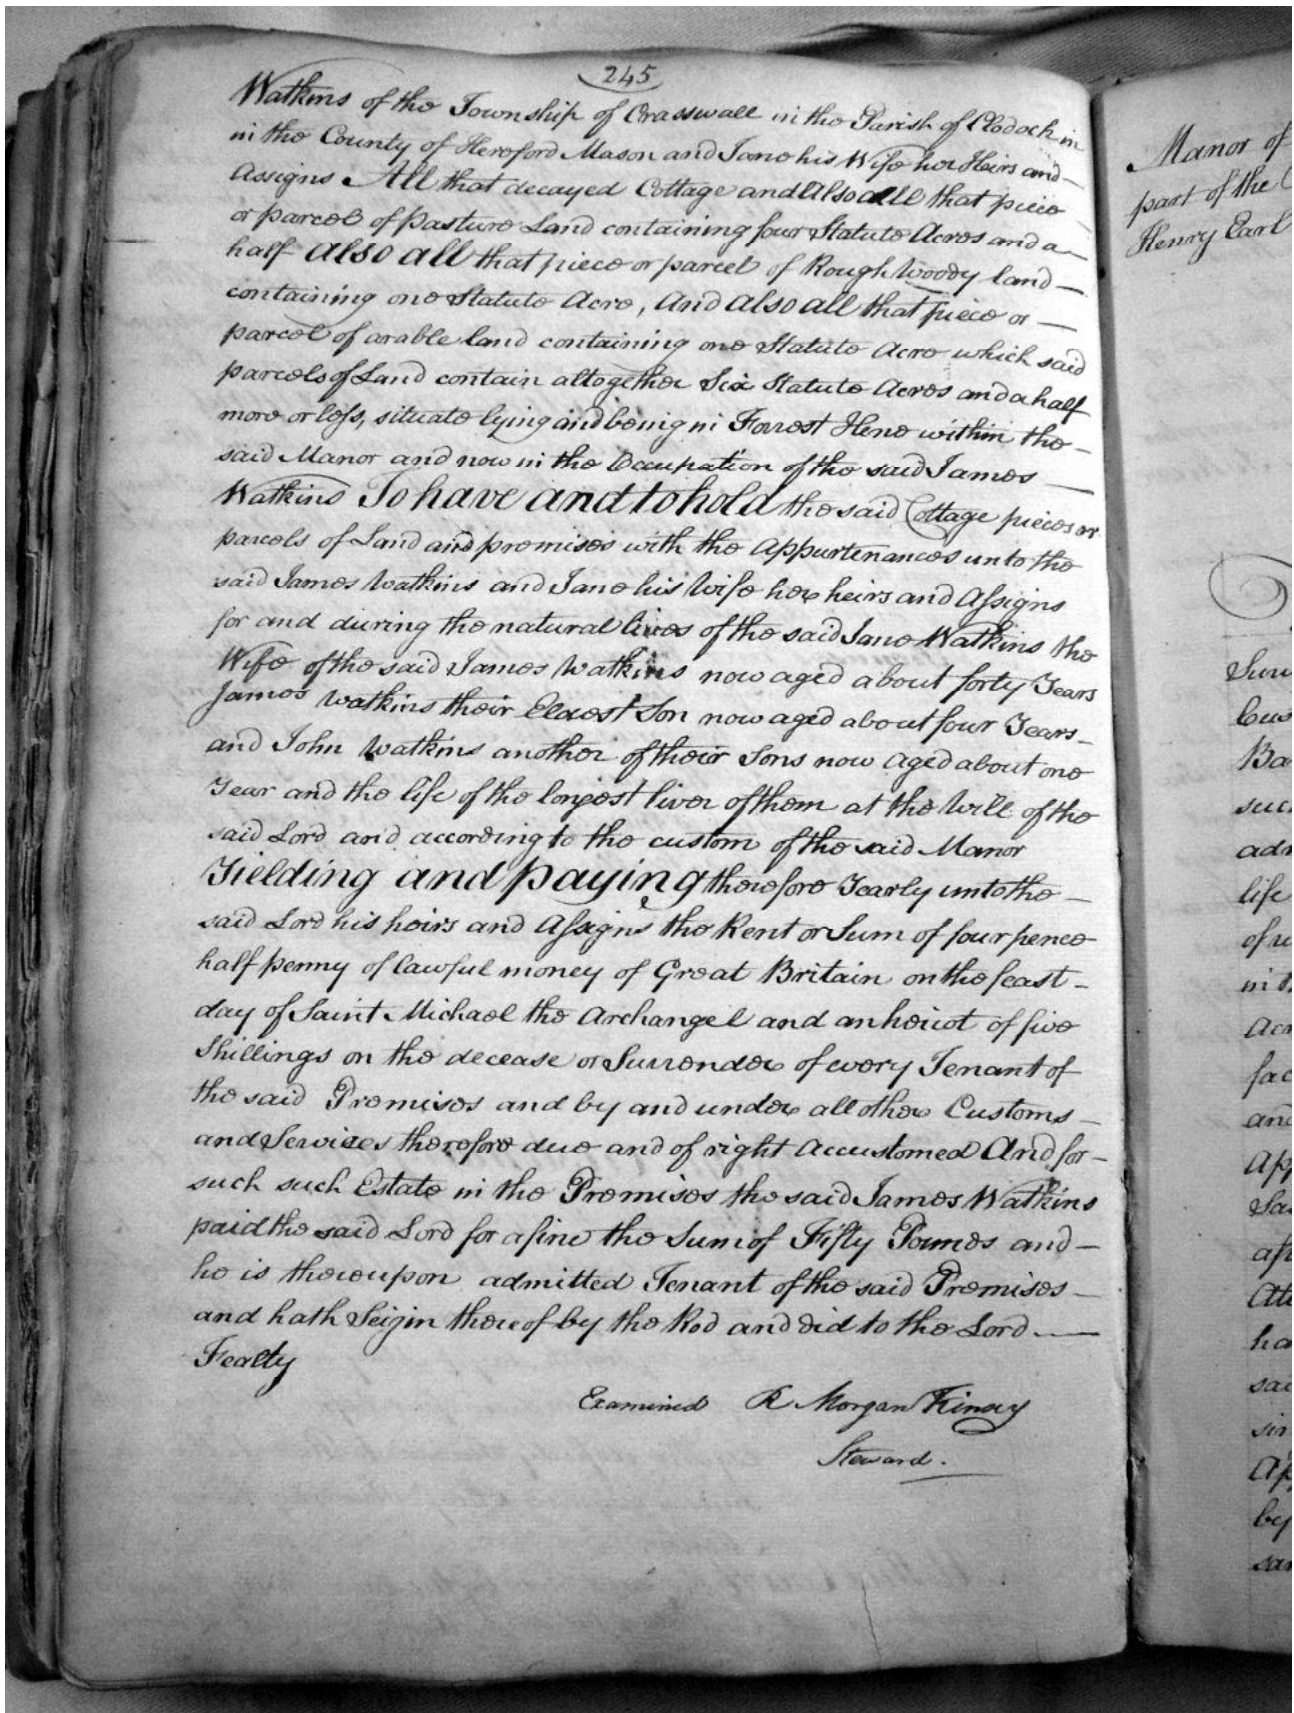 245
Watkins of the Township of Crasswall in the Parish of Clodock in
in the County of Hereford Mason and Jane his Wife her Heirs and
Assigns All that decayed Cottage and Also all that piece
or parcel of Pasture Land containing four Statute Acres and a
half Also all that piece or parcel of Rough Woody land
containing one Statute Acre, And also all that piece or
parcel of arable land containing one Statute Acre which said
parcels of Land contain altogether Six Statute Acres and a half
more or less, situate lying and being in Forrest Hene within the
said Manor and now in the Occupation of the said James
Watkins To have and to hold the said Cottage pieces or
parcels of Land and premises with the Appurtenances unto the
said James Watkins and Jane his Wife her heirs and Assigns
for and during the natural lives of the said Jane Watkins the
Wife of the said James Watkins now aged about forty Years
James Watkins their Eldest Son now aged about four Years
and John Watkins another of their Sons now aged about one
Year and the life of the longest liver of them at the Will of the
said Lord and according to the custom of the said Manor
Yielding and paying therefore Yearly unto the
said Lord his heirs and Assigns the Rent or Sum of four pence
half penny of lawful money of Great Britain on the feast
day of Saint Michael the Archangel and an heriot of five
Shillings on the decease or Surrender of every Tenant of
the said Premises and by and under all other Customs
and Services therefore due and of right Accustomed And for
such such Estate in the Premises the said James Watkins
paid the said Lord for a fine the Sum of Fifty Pounds and
he is thereupon admitted Tenant of the said Premises
and hath Seizin thereof by the Rod and did to the Lord
Fealty
Examined R Morgan Kinsey
Steward.
Manor of
part of the
Henry Earl
Ba
life